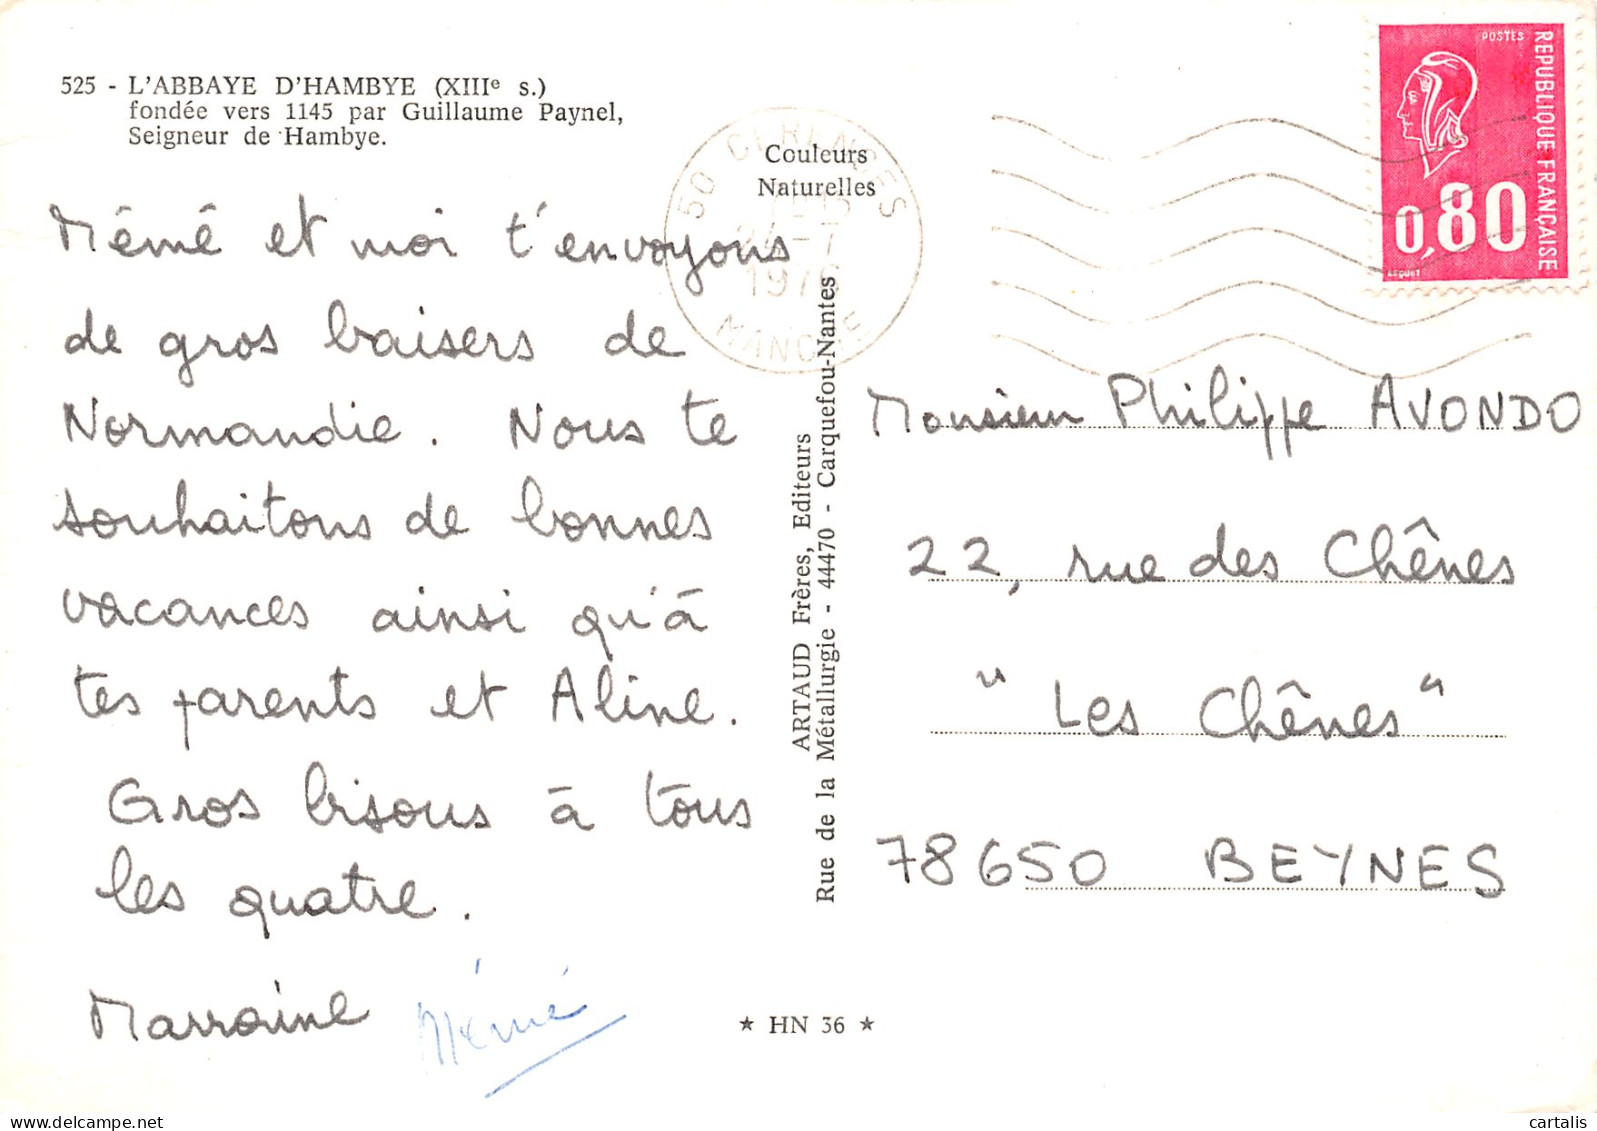 525 - L'ABBAYE D'HAMBYE (XIIIe s.)
fondée vers 1145 par Guillaume Paynel,
Seigneur de Hambye.
Couleurs
Naturelles
50 CERENCES
24-7
1976
MANCHE
POSTES
REPUBLIQUE FRANÇAISE
0,80
BEQUET
Mémé et moi t'envoyons
de gros baisers de
Normandie. Nous te
souhaitons de bonnes
vacances ainsi qu'à
tes parents et Aline.
Gros bisous à tous
les quatre.
Marraine Mémé
ARTAUD Frères, Editeurs
Rue de la Métallurgie - 44470 - Carquefou-Nantes
Monsieur Philippe AVONDO
22, rue des Chênes
"Les Chênes"
78650 BEYNES
★ HN 36 ★
www.delcampe.net
cartalis